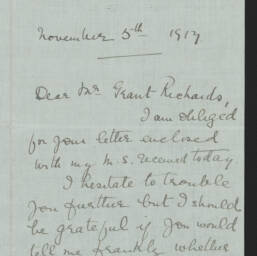 November 5th 1917
Dear Mr Grant Richards,
I am obliged
for your letter enclosed
with my M.S. received today
I hesitate to trouble
you further but I should
be grateful if you would
tell me frankly whether